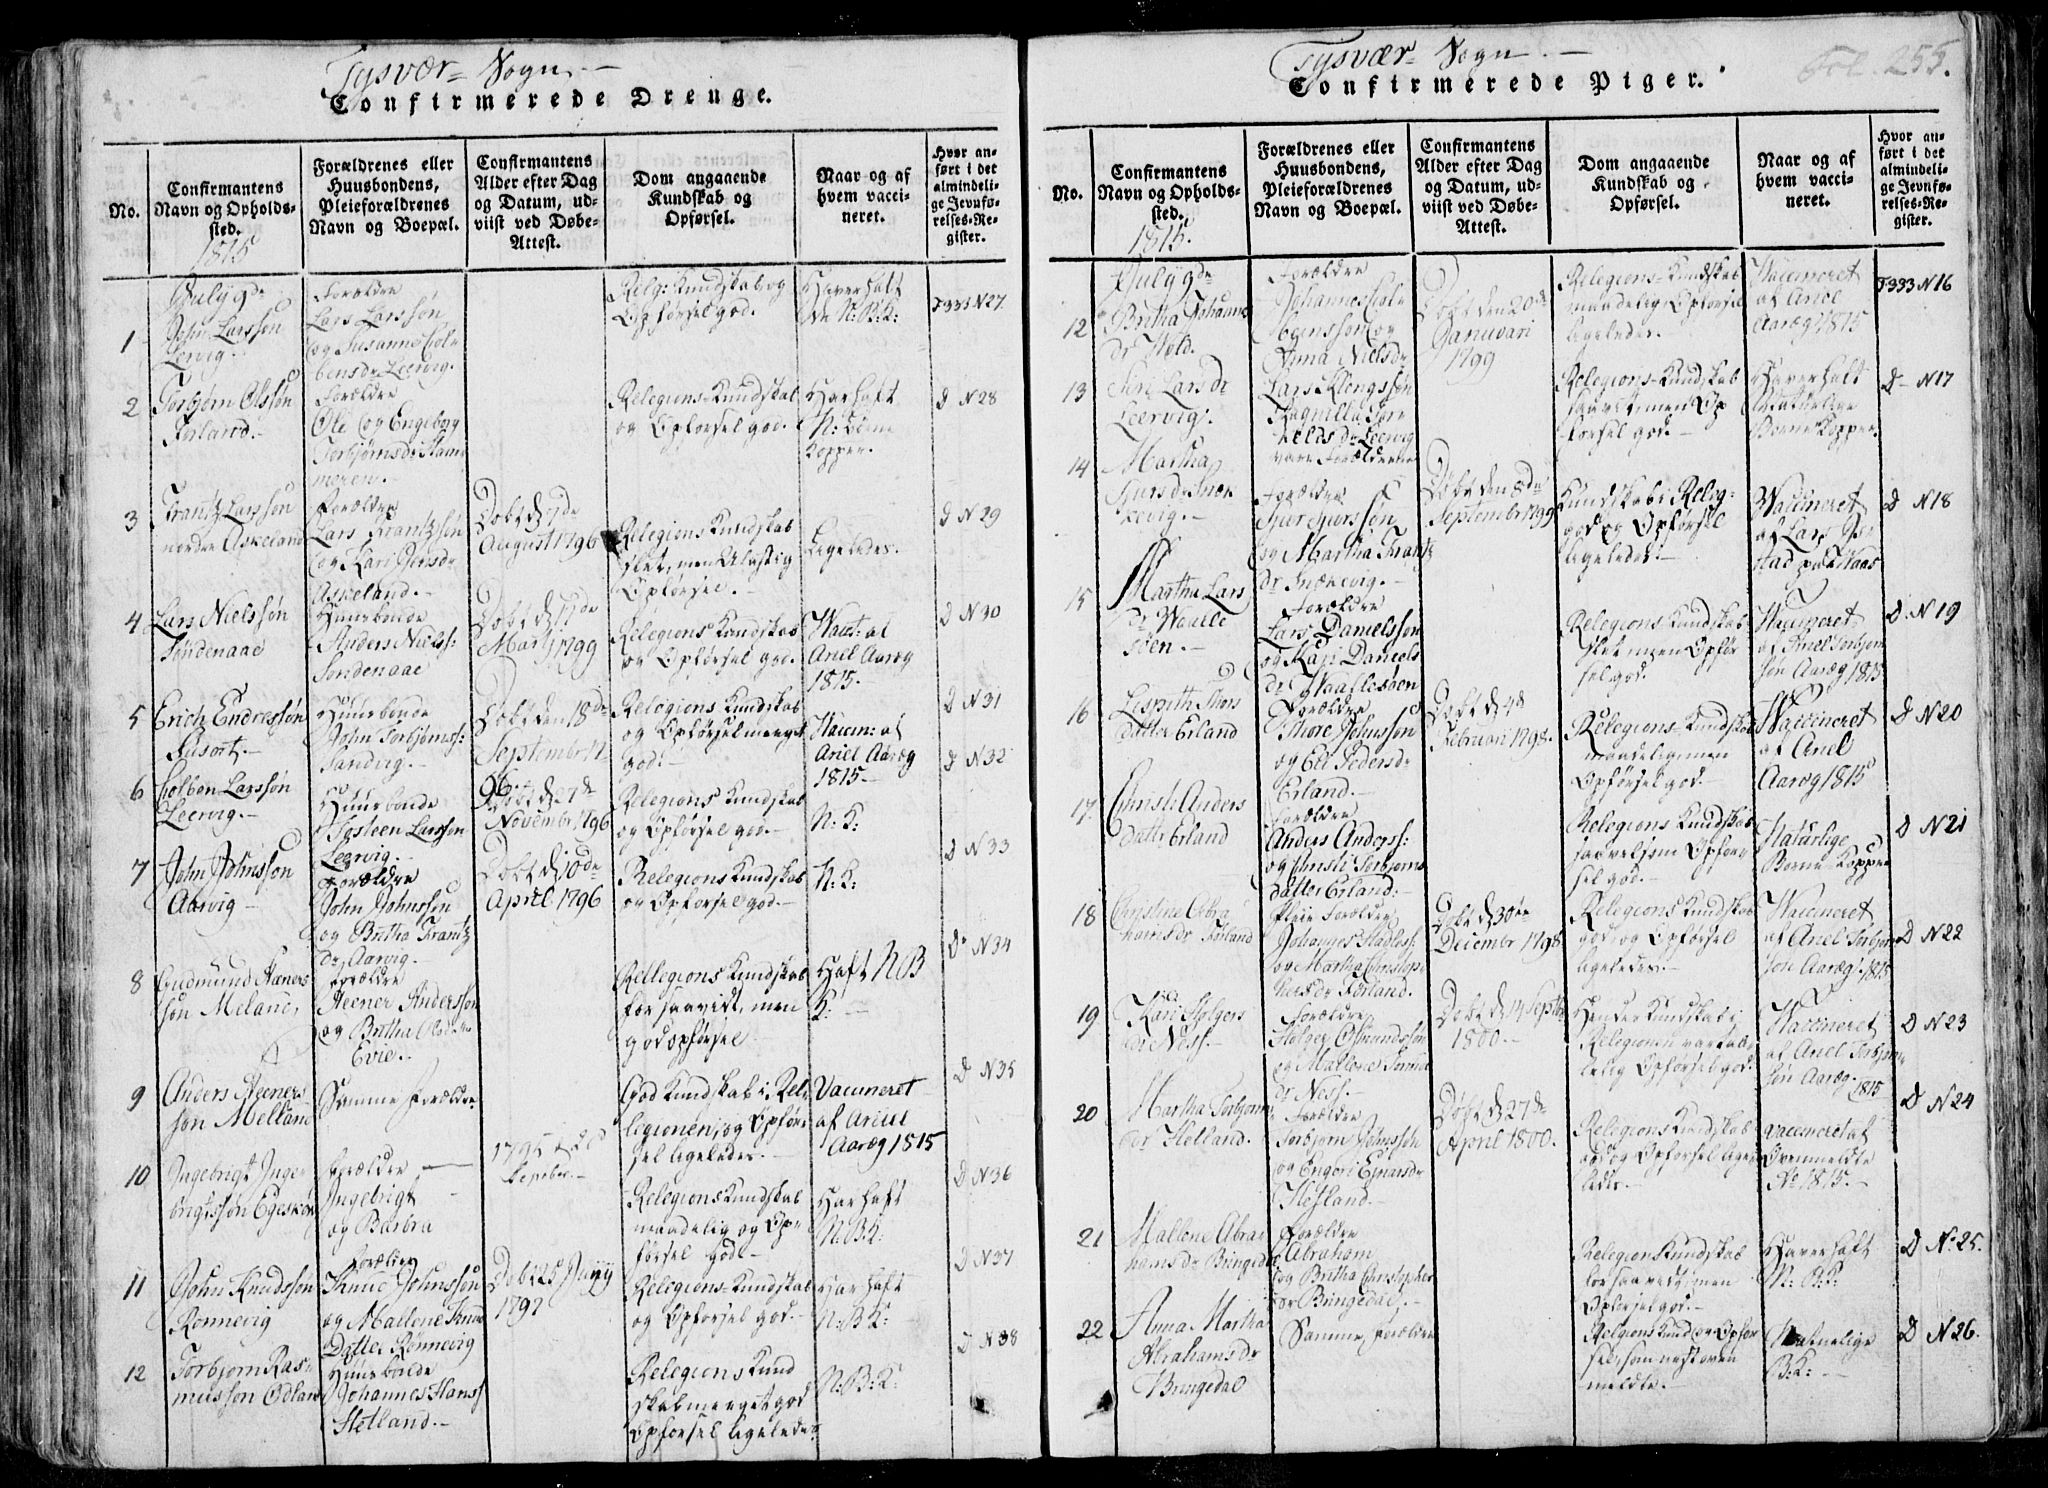 Tysvær Sogn.
Confirmerede Drenge.
No.
Confirmantens
Navn og Opholds-
sted.
Forældrenes eller
Huusbondens,
Pleieforældrenes
Navn og Boepæl.
Confirmantens
Alder efter Dag
og Datum, ud-
viist ved Døbe-
Attest.
Dom angaaende
Kundskab og
Opførsel.
Naar og af
hvem vacci-
neret.
Hvor an-
ført i det
almindeli-
ge Jevnfø-
relses-Re-
gister.
1815
July 9de
1
John Larssøn
Leervig.
Forældre
Lars Larssøn
og Susanne Col-
bensdr Leervig.
Relg: Kundskab og
Opførsel god.
Haver haft
de N: B: K:
F 333 N 27
2
Torbjørn Olssøn
Førland.
Forældre
Ole og Engeborg
Torbjørnsdr Ham-
meren.
Relegions Kundskab
og Opførsel god.
Har haft
N: Børne
Kopper.
D N 28
3
Frantz Larssøn
nordre Askeland
Forældre
Lars Frantzsøn
og Kari
Askeland.
Døbt d 7de
August 1796
Relegions Kundskab
slet, men
Opførsel.
Ligeledes.
D N 29
4
Lars Nielssøn
Søndenaae
Huusbonde
Anders Nielss:
Søndenaae
Døbt d 17de
Martj 1799
Relegions Kundskab
og Opførsel god.
Vacc: af
Ariel Aarøg
1815.
D N 30
5
Erich Endressøn
Huusbonde
John Torbjørnss:
Sandvig.
Døbt den 18de
Septembr 17
96
Relegions Kundskab
og Opførsel meeget
god.
Vaccin: af
Ariel Aarøg
1815.
D N 31
6
Colben Larssøn
Leervig.
Huusbonde
Tosteen Larssøn
Leervig.
Døbt d 27de
Novembr 1796
Relegions Kundskab
og Opførsel god.
N: K:
D N 32
7
John Johnssøn
Aarvig
Forældre
John Johnssøn
og Britha Frantz
dr, Aarvig.
Døbt d 10de
April 1796
Relegions Kundskab
og Opførsel god.
N: K:
D N 33
8
Gudmund Heeners
søn Meland,
Forældre
Heener Anderssøn
og Britha
Evie.
Rellegions Kundskab
forsaavidt, men
god opførsel
Haft N B
K:
D N 34
9
Anders Heeners
søn Melland
Samme Forældre
God Kundskab i Rel-
legionen, og Opfør-
sel ligeledes.
Vaccineret
af Ariel
Aarøg 1815
D N 35
10
Ingebrigt Inge-
brigtssøn Egeskov
Forældre
Ingebrigt
og Barbra
1795
Relegions Kundskab
maadelig og Op-
førsel god.
Har haft
N: B: K:
D N 36
11
John Knudssøn
Rønnevig
Forældre
Knud Johnssøn
og Mallene Knud
Datter Rønnevig
Døbt 25 Juny
1797
Relegions Kundskab
og Opførsel god.
Har haft
N: B: K:
D N 37
12
Torbjørn Ras-
mussøn Odland
Huusbonde
Johannes Hanss
Hetland.
Relegions Kund
skab meeget god
Opførsel ligeledes
N: B: K:
D N 38
Tysvær Sogn.
Confirmerede Piger.
Fol. 255.
No.
Confirmantens
Navn og Opholds-
sted.
Forældrenes eller
Huusbondens,
Pleieforældrenes
Navn og Boepæl.
Confirmantens
Alder efter Dag
og Datum, ud-
viist ved Døbe-
Attest.
Dom angaaende
Kundskab og
Opførsel.
Naar og af
hvem vacci-
neret.
Hvor an-
ført i det
almindeli-
ge Jevnfø-
relses-Re-
gister.
1815.
July 9de
12
Britha Johanns
dr
Forældre
Johannes Col-
og
Anna Nielsdr
Døbt den 20de
Januari
1799
Relegions Kundskab
maadelig Opførsel
ligeledes.
Vaccineret
af Ariel
Aarøg 1815
F 333 N 16
13
Siri Larsdr
Leervig.
Lars Klengssøn
Ragnilde Tor
dr Leervig
vare Forældrene
Relegions Kundskab
Op
førsel god.
Haver haft
Naturlige
Børne Kopper.
D N 17
14
Martha
Sjursdr Snæe
kevig.
Forældre
Sjur Sjurssøn
og Martha Frantz
dr Snækevig.
Døbt den 8de
September 1799
Kundskab i Relig:
god og Opførsel
ligeledes.
Vaccineret
af Lars
D N 18
15
Martha Lars
dr Waarle
søen.
Forældre
Lars Danielssøn
og Kari Daniels
dr Waarlesøen
Relegions Kundskab
slet men Opfør
sel god.
Vaccineret
af Ariel Torbjørn
søn Aarøg 1815
D N 19
16
Lispeth Thors
datter Erland
Forældre
Thore Johnssøn
og Eli Pedersdr
Erland.
Døbt d 4de
Februari 1798.
Relegions Kundskab
maadelig men
Opførsel god.
Vaccineret
af Ariel
Aarøg 1815
D N 20
17
Christi Anders
datter Erland
Forældre
Anders Anderss:
og Christi Torbjørns
datter Erland.
Relegions Kundskab
saavelsom Opfør
sel god.
Naturlige
Børne Kopper
D N 21
18
Christine Abra
hamsdr Førland
Pleie Forældre
Johannes
og Martha Christop
hersdr Førland.
Døbt d 30te
Decembr 1798
Relegions Kundskab
god, og Opførsel
ligeledes.
Vaccineret
af Ariel Torbjørn
søn Aarøg. 1815
D N 22
19
Kari Holgers
dr Ness.
Forældre
Holger Osmundssøn
og Mallene
dr Ness.
Døbt d 14 Septbr
1800.
Hendes Kundskab i
Relegionen var taa-
lelig Opførsel god.
Vaccineret
af Ariel Torbjørn
søn Aarøg. 1815
D N 23
20
Martha Torbjørns
dr Hetland.
Forældre
Torbjørn Johnssøn
og Engeri Einarsdr
Hetland.
Døbt d 27de
April 1800.
Relegions Kundskab
god og Opførsel lige
ledes.
vaccineret af
Ovenmeldte
No 1815.
D N 24
21
Mallene Abra
hamsdr Bringedal
Forældre
Abraham
og Britha Christopher
dr Bringedal.
Relegions Kundskab
forsaavidt, men
Opførsel god.
Haver haft
N: B: K:
D No 25.
22
Anna Martha
Abrahamsdr
Bringedal
Samme Forældre
Relgions Kund og Opfør
sel, som nest oven
meldte.
Naturlige
B: K:
D N 26.